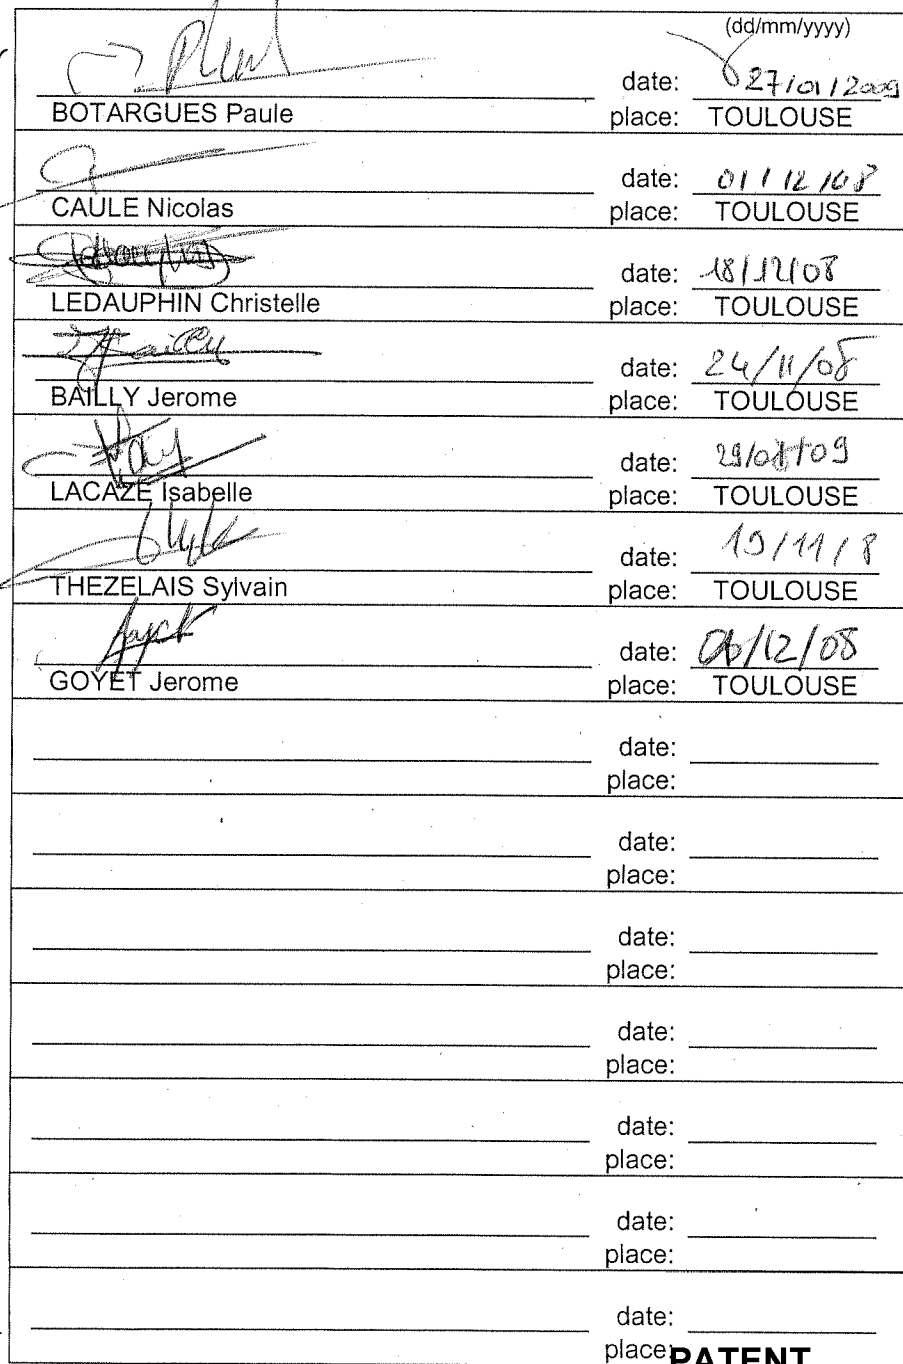 (dd/mm/yyyy)
date: 27/01/2009
BOTARGUES Paule place: TOULOUSE
date: 01/12/08
CAULE Nicolas place: TOULOUSE
date: 18/12/08
LEDAUPHIN Christelle place: TOULOUSE
date: 24/11/08
BAILLY Jerome place: TOULOUSE
date:
LACAZE Isabelle place: TOULOUSE
date: 19/11/8
THEZELAIS Sylvain place: TOULOUSE
date:
GOYET Jerome place: TOULOUSE
date:
place:
date:
place:
date:
place:
date:
place:
date:
place:
date:
place:
date:
place:
PATENT